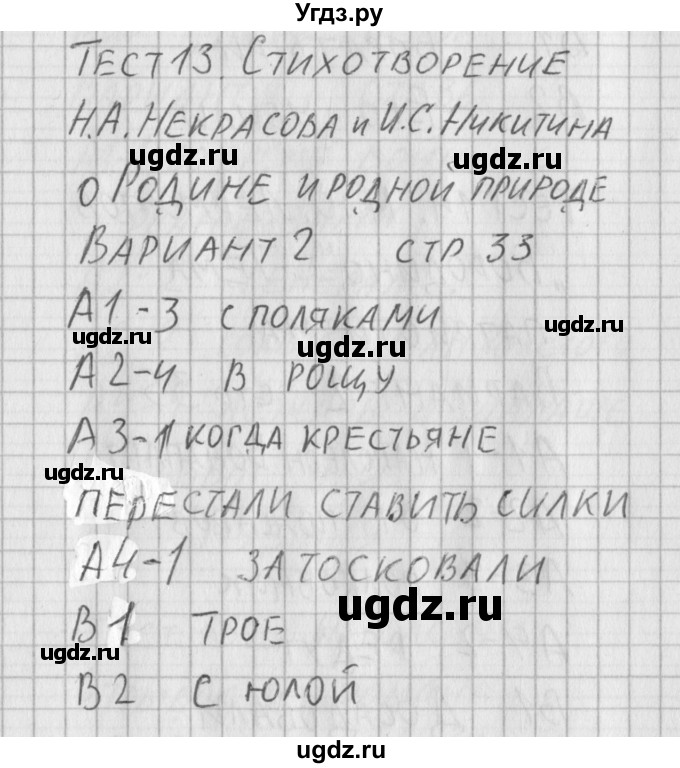 Угдз.ру
Тест 13. Стихотворение
Н.А. Некрасова и И.С. Никитина
ugdz.ru ugdz.ru
о Родине и родной природе
Вариант 2 стр 33
А1-3 с поляками
ugdz.ru ugdz.ru ugdz.ru
А2-4 в рощу
А3-1 когда крестьяне
ugdz.ru
перестали ставить силки
А4-1 затосковали
ugdz.ru
В1 трое
ugdz.ru
В2 с юлой
ugdz.ru